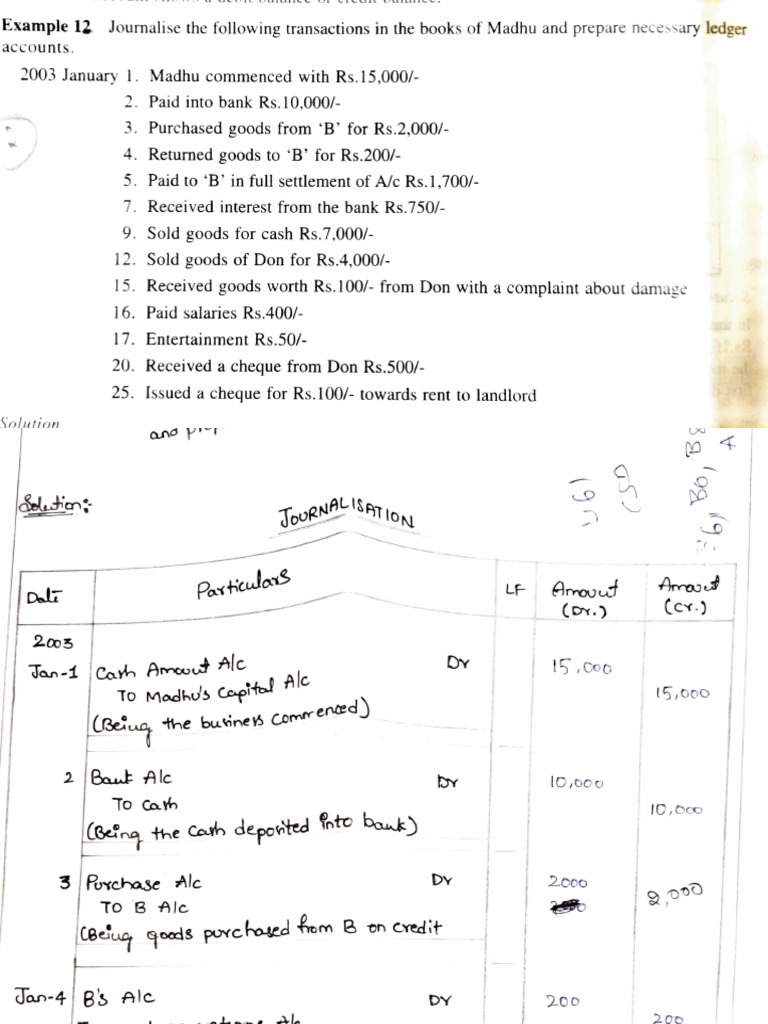 Example 12 Journalise the following transactions in the books of Madhu and prepare necessary ledger
accounts.
2003 January 1. Madhu commenced with Rs.15,000/-
2. Paid into bank Rs.10,000/-
3. Purchased goods from 'B' for Rs.2,000/-
4. Returned goods to 'B' for Rs.200/-
5. Paid to 'B' in full settlement of A/c Rs.1,700/-
7. Received interest from the bank Rs.750/-
9. Sold goods for cash Rs.7,000/-
12. Sold goods of Don for Rs.4,000/-
15. Received goods worth Rs.100/- from Don with a complaint about damage
16. Paid salaries Rs.400/-
17. Entertainment Rs.50/-
20. Received a cheque from Don Rs.500/-
25. Issued a cheque for Rs.100/- towards rent to landlord
Solution
and
Solution:-
JOURNALISATION
Date Particulars LF Amount (Dr.) Amount (Cr.)
2003
Jan-1 Cash Amount A/c Dr 15,000
To Madhu's Capital A/c 15,000
(Being the business commenced)
2 Bank A/c Dr 10,000
To cash 10,000
(Being the cash deposited into bank)
3 Purchase A/c Dr 2000
To B A/c 2,000
(Being goods purchased from B on credit
Jan-4 B's A/c Dr 200
A/c 200